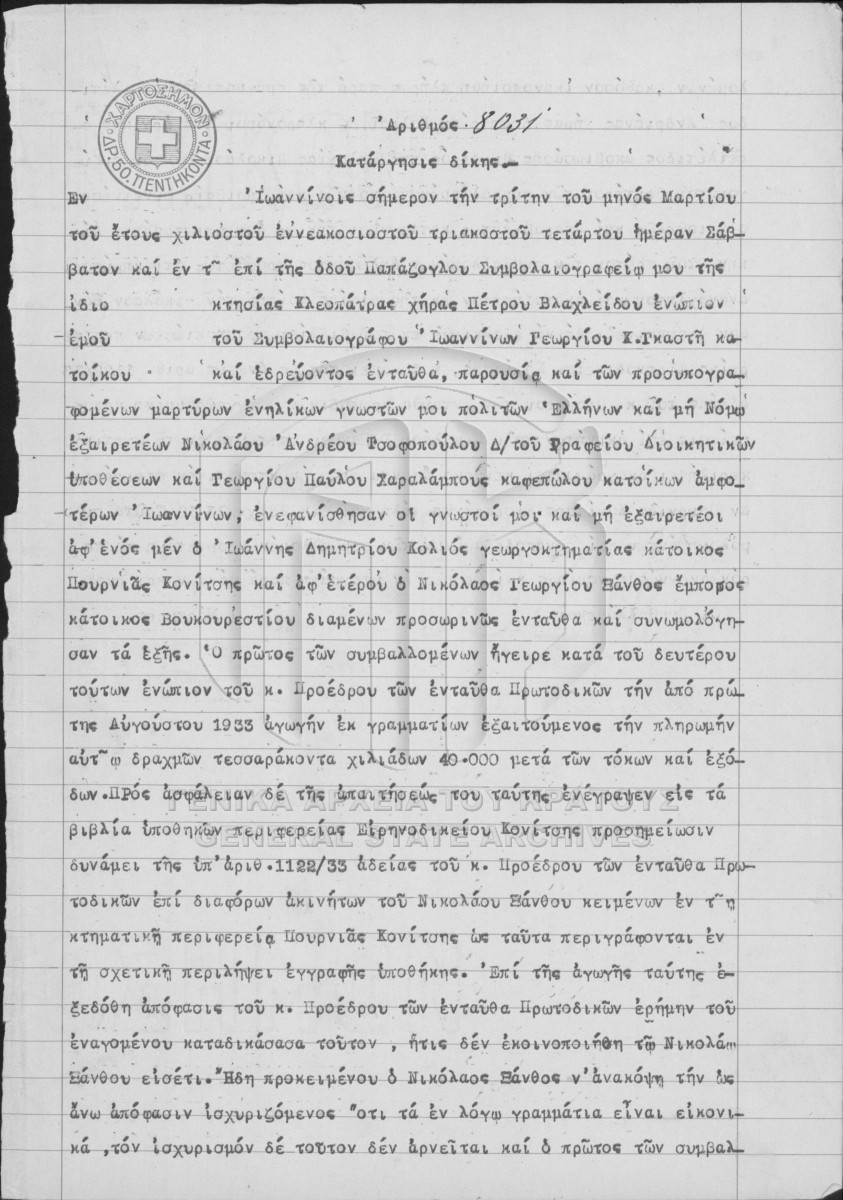 ΧΑΡΤΟΣΗΜΟΝ
ΔΡ.50.ΠΕΝΤΗΚΟΝΤΑ
Ἀριθμός 8031
Κατάργησις δίκης.-
Εν Ἰωαννίνοις σήμερον τήν τρίτην τοῦ μηνός Μαρτίου
τοῦ ἔτους χιλιοστοῦ ἐννεακοσιοστοῦ τριακοστοῦ τετάρτου ἡμέραν Σάβ-
βατον καί ἐν τῷ ἐπί τῆς ὁδοῦ Παπάζογλου Συμβολαιογραφείῳ μου τῆς
ἰδιο κτησίας Κλεοπάτρας χήρας Πέτρου Βλαχλείδου ἐνώπιον
ἐμοῦ τοῦ Συμβολαιογράφου Ἰωαννίνων Γεωργίου Χ.Γκαστῆ κα-
τοίκου καί ἑδρεύοντος ἐνταῦθα, παρουσίᾳ καί τῶν προσυπογρα-
φομένων μαρτύρων ἐνηλίκων γνωστῶν μοι πολιτῶν Ἑλλήνων καί μή Νόμῳ
ἐξαιρετέων Νικολάου Ἀνδρέου Τσοφοπούλου Δ/τοῦ Γραφείου Διοικητικῶν
ὑποθέσεων καί Γεωργίου Παύλου Χαραλάμπους καφεπώλου κατοίκων ἀμφο-
τέρων Ἰωαννίνων, ἐνεφανίσθησαν οἱ γνωστοί μοι καί μή ἐξαιρετέοι
ἀφ'ἑνός μέν ὁ Ἰωάννης Δημητρίου Κολιός γεωργοκτηματίας κάτοικος
Πουρνιᾶς Κονίτσης καί ἀφ'ἑτέρου ὁ Νικόλαος Γεωργίου Ξάνθος ἔμπορος
κάτοικος Βουκουρεστίου διαμένων προσωρινῶς ἐνταῦθα καί συνωμολόγη-
σαν τά ἑξῆς. Ὁ πρῶτος τῶν συμβαλλομένων ἤγειρε κατά τοῦ δευτέρου
τούτων ἐνώπιον τοῦ κ. Προέδρου τῶν ἐνταῦθα Πρωτοδικῶν τήν ἀπό πρώ-
της Αὐγούστου 1933 ἀγωγήν ἐκ γραμματίων ἐξαιτούμενος τήν πληρωμήν
αὐτῷ δραχμῶν τεσσαράκοντα χιλιάδων 40.000 μετά τῶν τόκων καί ἐξό-
δων.Πρός ἀσφάλειαν δέ τῆς ἀπαιτήσεώς του ταύτης ἐνέγραψεν εἰς τά
βιβλία ὑποθηκῶν περιφερείας Εἰρηνοδικείου Κονίτσης προσημείωσιν
δυνάμει τῆς ὑπ'ἀριθ.1122/33 ἀδείας τοῦ κ. Προέδρου τῶν ἐνταῦθα Πρω-
τοδικῶν ἐπί διαφόρων ἀκινήτων τοῦ Νικολάου Ξάνθου κειμένων ἐν τῇ
κτηματικῇ περιφερείᾳ Πουρνιᾶς Κονίτσης ὡς ταῦτα περιγράφονται ἐν
τῇ σχετικῇ περιλήψει ἐγγραφῆς ὑποθήκης. Ἐπί τῆς ἀγωγῆς ταύτης ἐ-
ξεδόθη ἀπόφασις τοῦ κ. Προέδρου τῶν ἐνταῦθα Πρωτοδικῶν ἐρήμην τοῦ
ἐναγομένου καταδικάσασα τοῦτον , ἥτις δέν ἐκοινοποιήθη τῷ Νικολά
Ξάνθου εἰσέτι. Ἤδη προκειμένου ὁ Νικόλαος Ξάνθος ν'ἀνακόψῃ τήν ὡς
ἄνω ἀπόφασιν ἰσχυριζόμενος ὅτι τά ἐν λόγῳ γραμμάτια εἶναι εἰκονι-
κά ,τόν ἰσχυρισμόν δέ τοῦτον δέν ἀρνεῖται καί ὁ πρῶτος τῶν συμβαλ-
ΓΕΝΙΚΑ ΑΡΧΕΙΑ ΤΟΥ ΚΡΑΤΟΥΣ
GENERAL STATE ARCHIVES